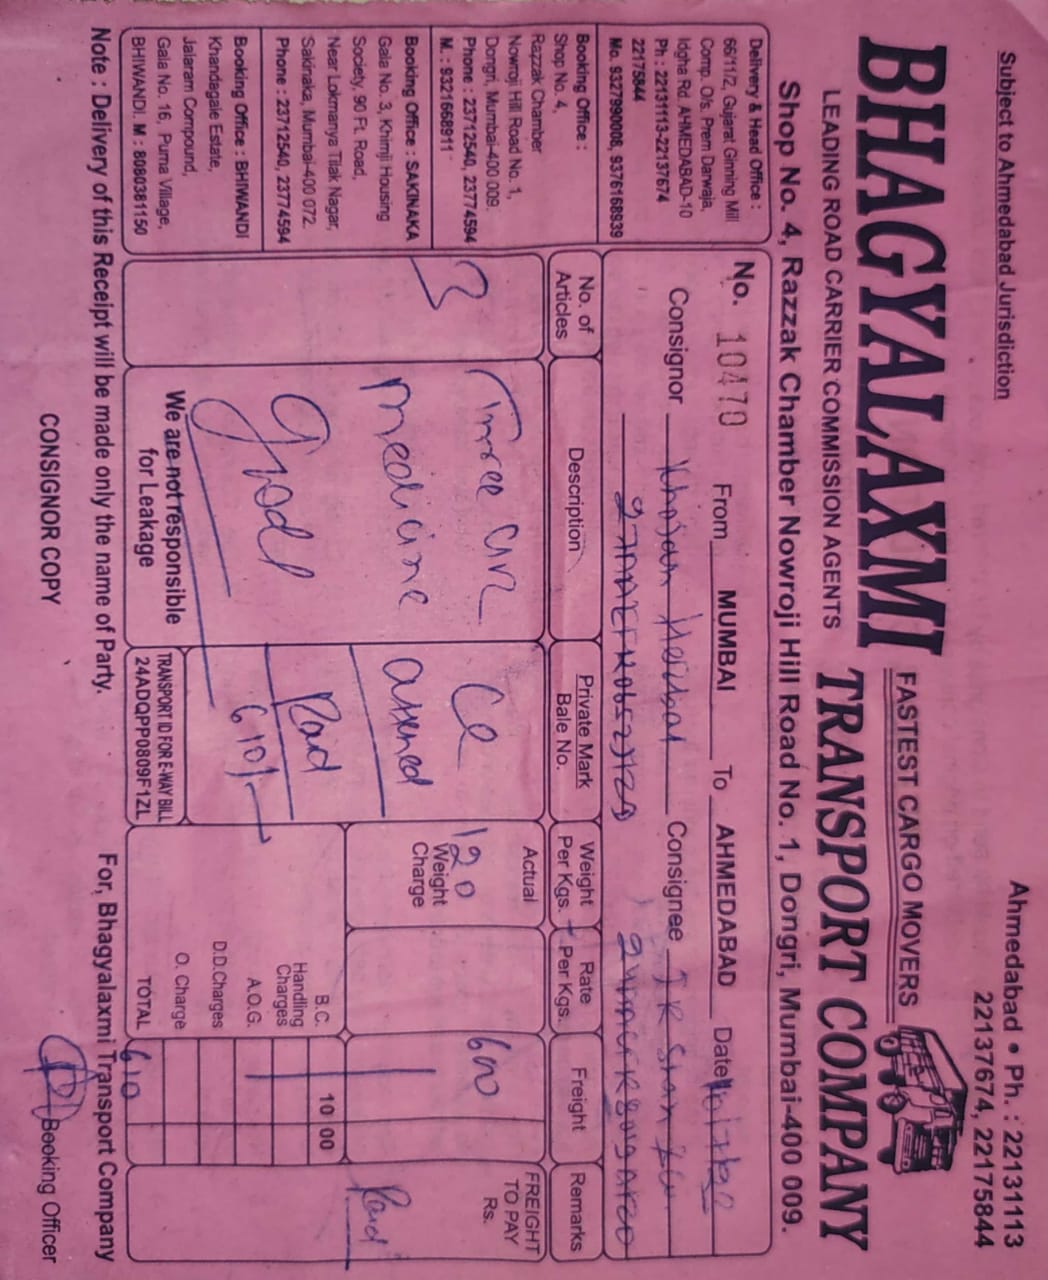 Subject to Ahmedabad Jurisdiction
Ahmedabad • Ph. : 22131113
22137674, 22175844
BHAGYALAXMI
FASTEST CARGO MOVERS
TRANSPORT COMPANY
LEADING ROAD CARRIER COMMISSION AGENTS
Shop No. 4, Razzak Chamber Nowroji Hill Road No. 1, Dongri, Mumbai-400 009.
Delivery & Head Office :
66/11/2, Gujarat Ginning Mill
Comp. O/s. Prem Darwaja,
Idgha Rd. AHMEDABAD-10
Ph : 22131113-22137674
22175844
Mo. 9327990008, 9376168939
Booking Office :
Shop No. 4,
Razzak Chamber
Nowroji Hill Road No. 1,
Dongri, Mumbai-400 009.
Phone : 23712540, 23774594
M. : 9321668911
Booking Office : SAKINAKA
Gala No. 3, Khimji Housing
Society, 90 Ft. Road,
Near Lokmanya Tilak Nagar,
Sakinaka, Mumbai-400 072.
Phone : 23712540, 23774594
Booking Office : BHIWANDI
Khandagale Estate,
Jalaram Compound,
Gala No. 16, Purna Village,
BHIWANDI. M : 8080381150
No. 10470 From MUMBAI To AHMEDABAD Date
Consignor Consignee
No. of Articles
Description
Private Mark Bale No.
Weight Per Kgs.
Rate Per Kgs.
Freight
Remarks
3
Three
medicine
good
We are not responsible
for Leakage
Paid
610/-
TRANSPORT ID FOR E-WAY BILL
24ADQPP0809F1ZL
Actual
120
Weight
Charge
600
FREIGHT
TO PAY
Rs.
Paid
B.C. 10 00
Handling
Charges
A.O.G.
D.D.Charges
O. Charge
TOTAL 610
Note : Delivery of this Receipt will be made only the name of Party.
For, Bhagyalaxmi Transport Company
CONSIGNOR COPY
Booking Officer